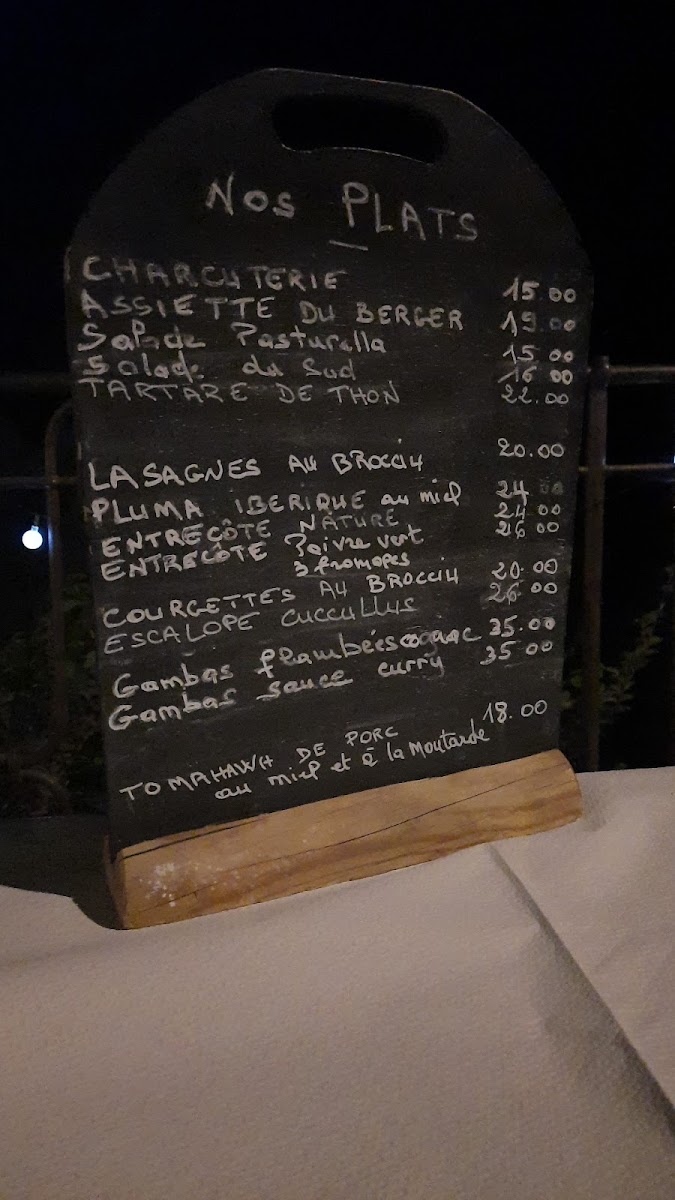 Nos PLATS
CHARCUTERIE 15.00
ASSIETTE DU BERGER 19.00
Salade Pasturella 15.00
Salade du Sud 16.00
TARTARE DE THON 22.00
LASAGNES AU BROCCIU 20.00
PLUMA IBERIQUE au miel 24.00
ENTRECÔTE NATURE 24.00
ENTRECÔTE Poivre vert 26.00
3 fromages
COURGETTES AU BROCCIU 20.00
ESCALOPE CUCCULLUS 26.00
Gambas flambées cognac 35.00
Gambas sauce curry 35.00
TOMAHAWH DE PORC 18.00
au miel et à la Moutarde